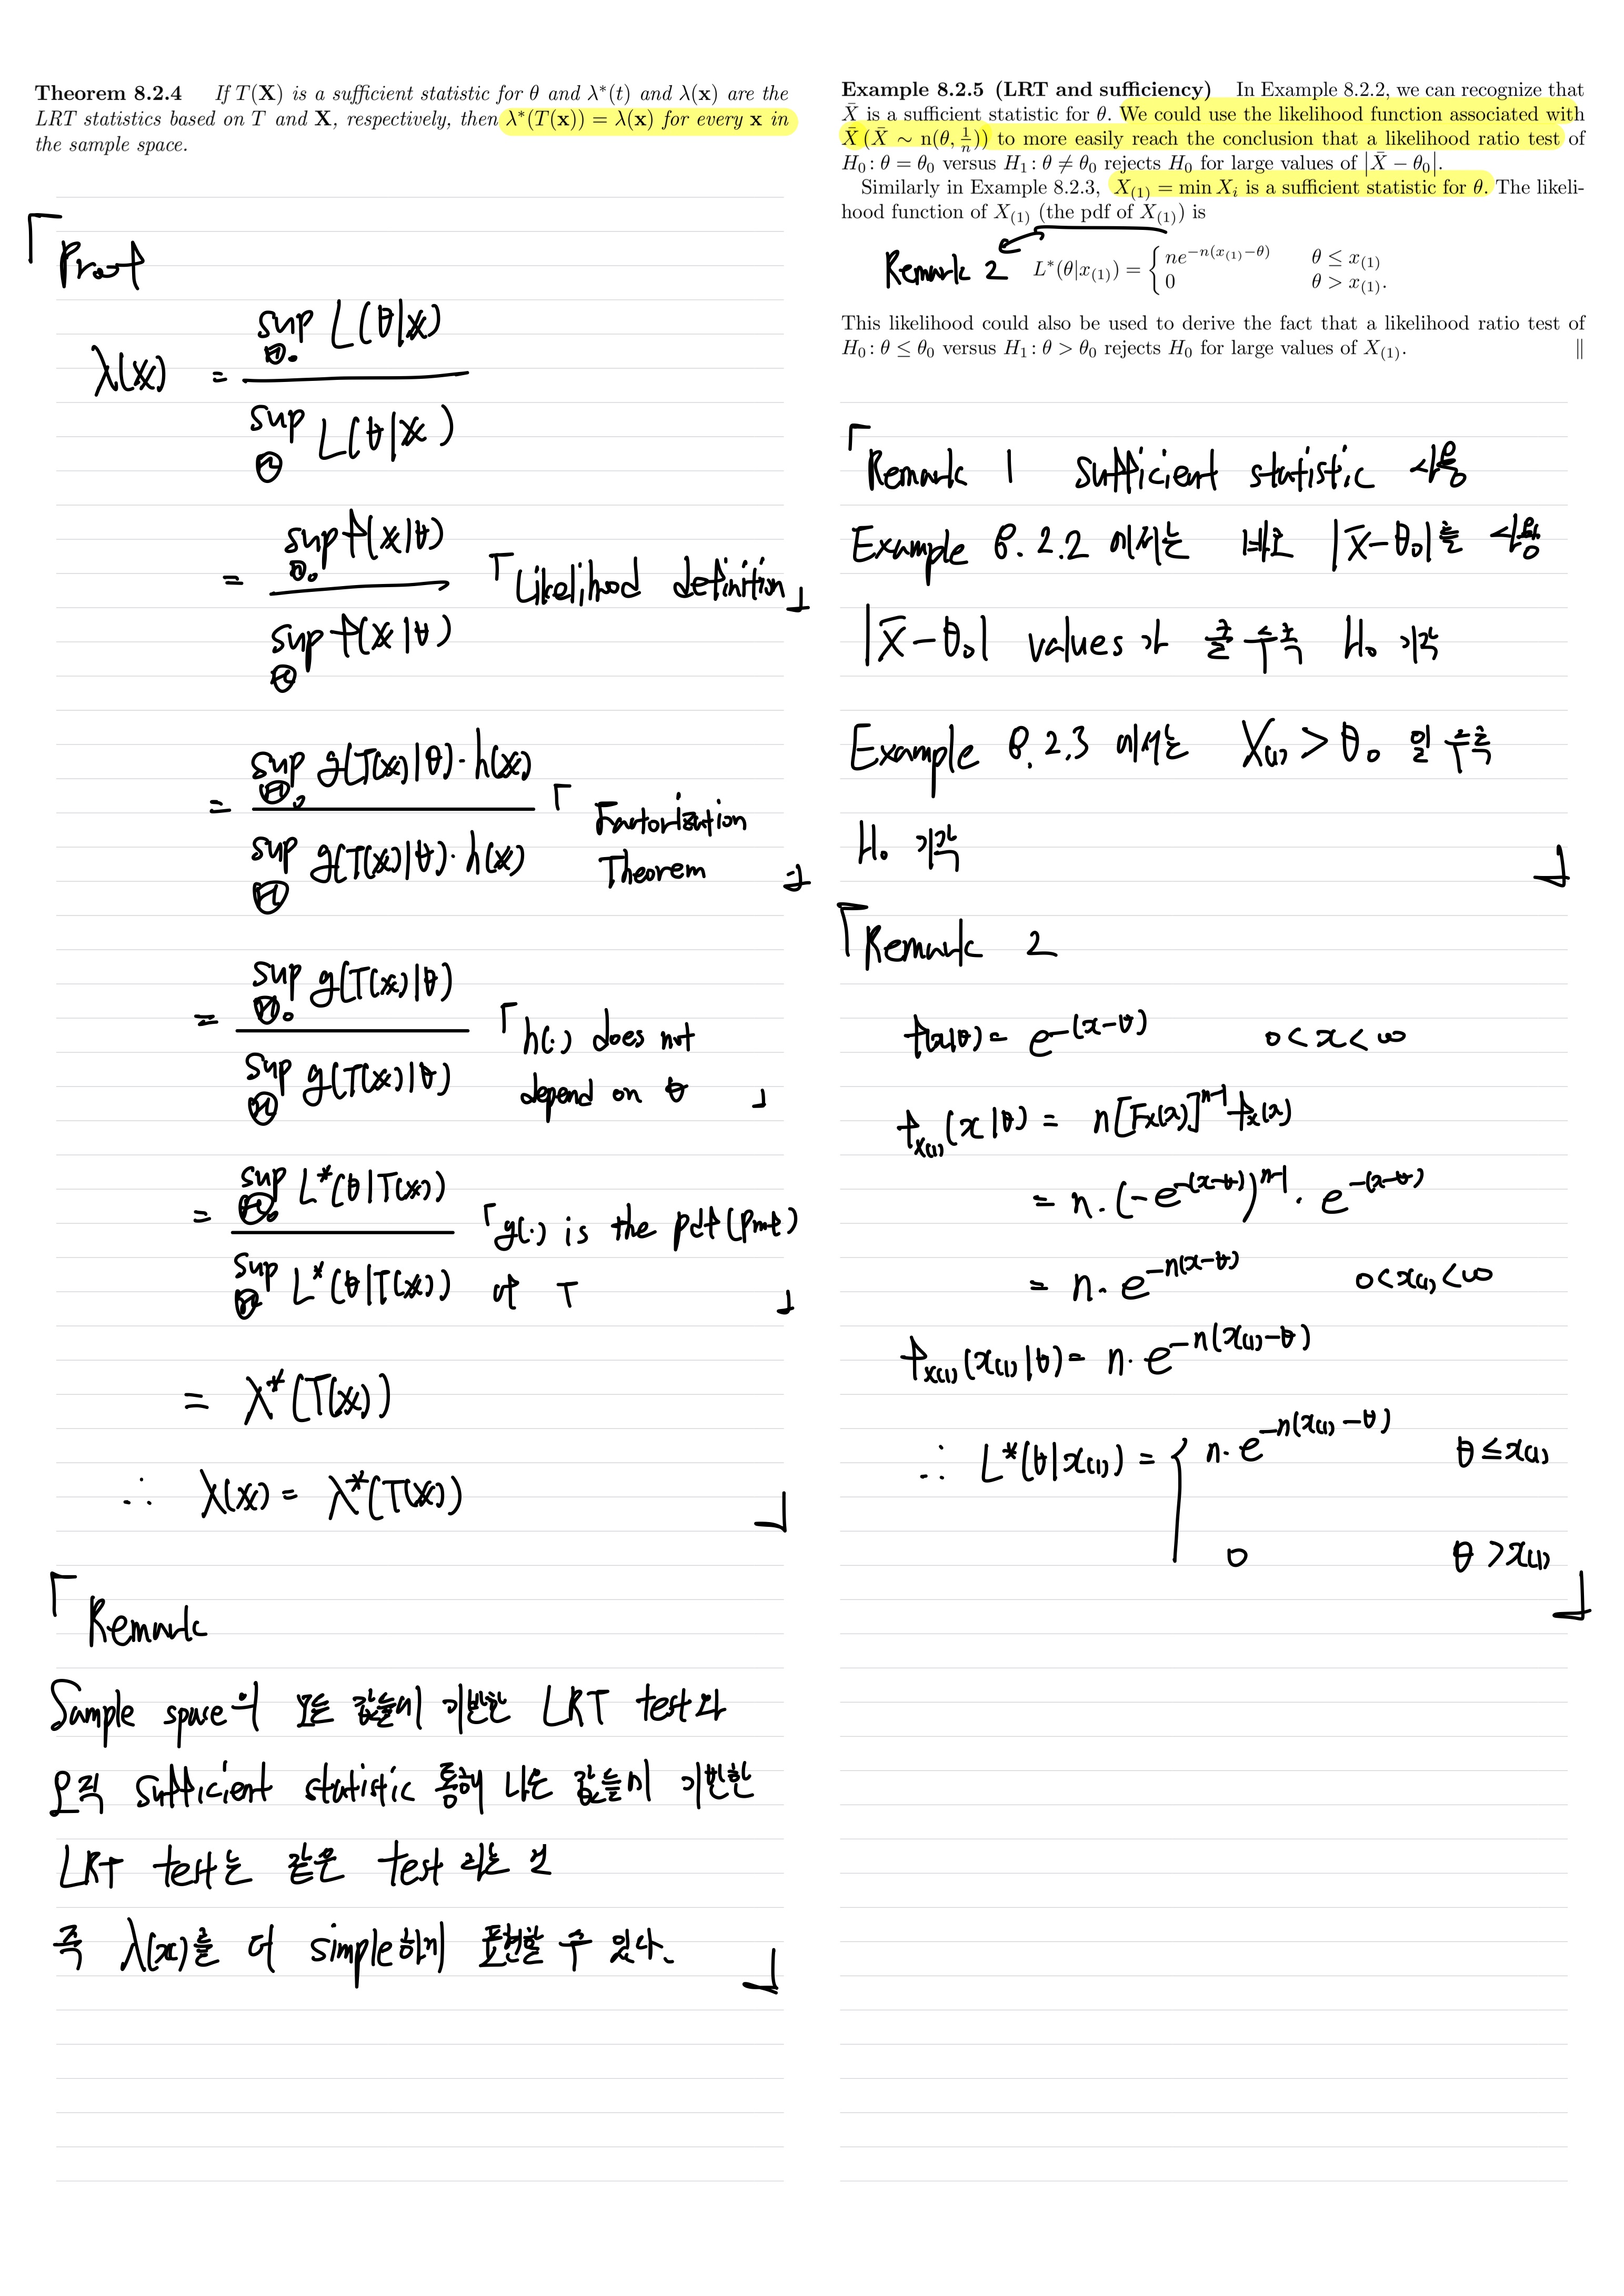 Theorem 8.2.4 If T(X) is a sufficient statistic for θ and λ*(t) and λ(x) are the
LRT statistics based on T and X, respectively, then λ*(T(x)) = λ(x) for every x in
the sample space.
「Proof
λ(x) = sup_Θ₀ L(θ|x) / sup_Θ L(θ|x)
= sup_Θ₀ f(x|θ) / sup_Θ f(x|θ) 「Likelihood definition」
= sup_Θ₀ g(T(x)|θ)·h(x) / sup_Θ g(T(x)|θ)·h(x) 「Factorization
Theorem 」
= sup_Θ₀ g(T(x)|θ) / sup_Θ g(T(x)|θ) 「h(·) does not
depend on θ 」
= sup_Θ₀ L*(θ|T(x)) / sup_Θ L*(θ|T(x)) 「g(·) is the pdf(pmf)
of T 」
= λ*(T(x))
∴ λ(x) = λ*(T(x)) 」
「Remark
Sample space의 모든 값들에 기반한 LRT test와
오직 sufficient statistic 통해 나온 값들에 기반한
LRT test는 같은 test 라는 것
즉 λ(x)를 더 simple하게 표현할 수 있다. 」
Example 8.2.5 (LRT and sufficiency) In Example 8.2.2, we can recognize that
X̄ is a sufficient statistic for θ. We could use the likelihood function associated with
X̄ (X̄ ∼ n(θ, 1/n)) to more easily reach the conclusion that a likelihood ratio test of
H₀: θ = θ₀ versus H₁: θ ≠ θ₀ rejects H₀ for large values of |X̄ − θ₀|.
Similarly in Example 8.2.3, X₍₁₎ = min Xᵢ is a sufficient statistic for θ. The likeli-
hood function of X₍₁₎ (the pdf of X₍₁₎) is
Remark 2 L*(θ|x₍₁₎) = { ne^{−n(x₍₁₎−θ)} θ ≤ x₍₁₎
0 θ > x₍₁₎.
This likelihood could also be used to derive the fact that a likelihood ratio test of
H₀: θ ≤ θ₀ versus H₁: θ > θ₀ rejects H₀ for large values of X₍₁₎. ‖
「Remark 1 sufficient statistic 사용
Example 8.2.2 에서는 바로 |x̄−θ₀|를 사용
|x̄−θ₀| values가 클수록 H₀ 기각
Example 8.2.3 에서는 X₍₁₎ > θ₀ 일수록
H₀ 기각 」
「Remark 2
f(x|θ) = e^{−(x−θ)} 0<x<∞
f_{X₍₁₎}(x|θ) = n[F_X(x)]^{n−1} f_X(x)
= n·(−e^{−(x−θ)})^{n−1}·e^{−(x−θ)}
= n·e^{−n(x−θ)} 0<x₍₁₎<∞
f_{X₍₁₎}(x₍₁₎|θ) = n·e^{−n(x₍₁₎−θ)}
∴ L*(θ|x₍₁₎) = { n·e^{−n(x₍₁₎−θ)} θ ≤ x₍₁₎
0 θ > x₍₁₎ 」